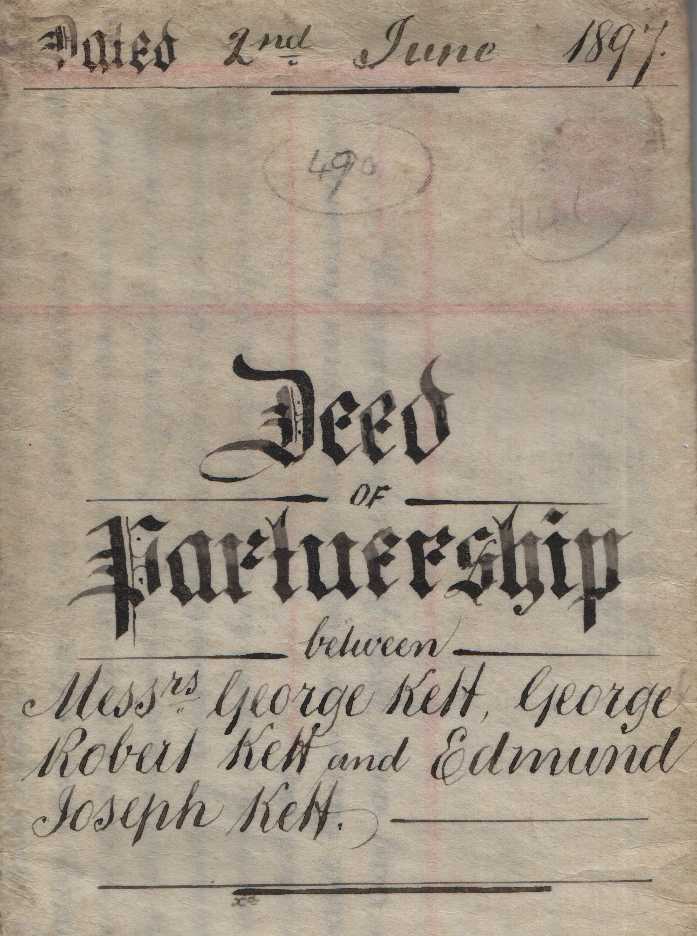 Dated 2nd June 1897.
490
Deed
OF
Partnership
between
Messrs George Kett, George
Robert Kett and Edmund
Joseph Kett.